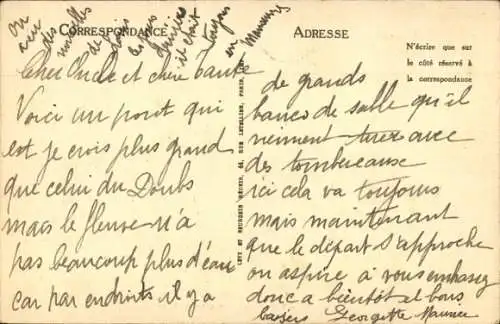 CORRESPONDANCE
ADRESSE
N'écrire que sur
le côté réservé à
la correspondance
Cher Oncle et chère tante
Voici un pont qui
est je crois plus grand
que celui du Doubs
mais le fleuve n'a
pas beaucoup plus d'eau
car par endroits il y a
de grands
bancs de sable qu'il
viennent tirer avec
des tombereaux
ici cela va toujours
mais maintenant
que le départ s'approche
on aspire à vous embrasser
donc a bientôt et bons
baisers Georgette Maurice
on
a eu
des
nouvelles
de
il était
toujours
en
LEVY ET NEURDEIN RÉUNIS, 44, RUE LETELLIER, PARIS